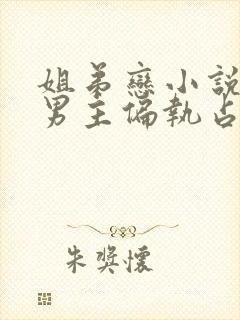 姐弟戀小說
男主偏執占
朱獎懷